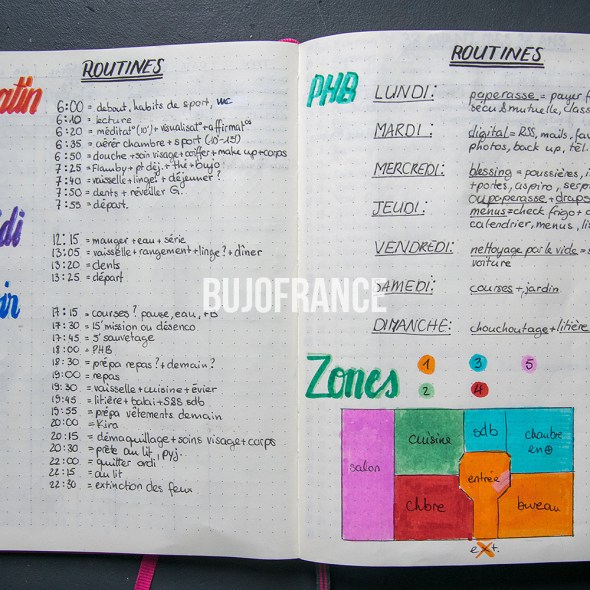 ROUTINES
atin
6:00 = debout, habits de sport, wc
6:10 = lecture
6:20 = méditat°(10')+visualisat°+affirmat°s
6:35 = aérer chambre + sport (10'-15')
6:50 = douche + soin visage + coiffer + make up + corps
7:25 = Flamby + pt déj. + thé + bujo
7:40 = vaisselle + linge? + déjeuner?
7:50 = dents + réveiller G.
7:55 = départ.
di
12:15 = manger + eau + série
13:05 = vaisselle + rangement + linge? + dîner
13:20 = dents
13:25 = départ
ir
17:15 = courses? pause, eau, FB
17:30 = 15' mission ou désenco
17:45 = 5' sauvetage
18:00 = PHB
18:30 = prépa repas? + demain?
19:00 = repas
19:30 = vaisselle + cuisine + évier
19:45 = litière + balai + S&S sdb
19:55 = prépa vêtements demain
20:00 = Kira
20:15 = démaquillage + soins visage + corps
20:30 = prête au lit, pyj.
22:00 = quitter ordi
22:15 = au lit
22:30 = extinction des feux
BUJOFRANCE
ROUTINES
PHB
LUNDI: paperasse = payer f
sécu & mutuelle, class
MARDI: digital = RSS, mails, fav
photos, back up, tél.
MERCREDI: blessing = poussières,
+portes, aspiro, serp
JEUDI: ou paperasse + draps
menus = check frigo +
calendrier, menus, li
VENDREDI: nettoyage par le vide =
voiture
SAMEDI: courses + jardin
DIMANCHE: chouchoutage + litière
Zones
1 3 5
2 4
salon
cuisine
sdb
chambre
en⊕
entrée
chbre
bureau
ext.